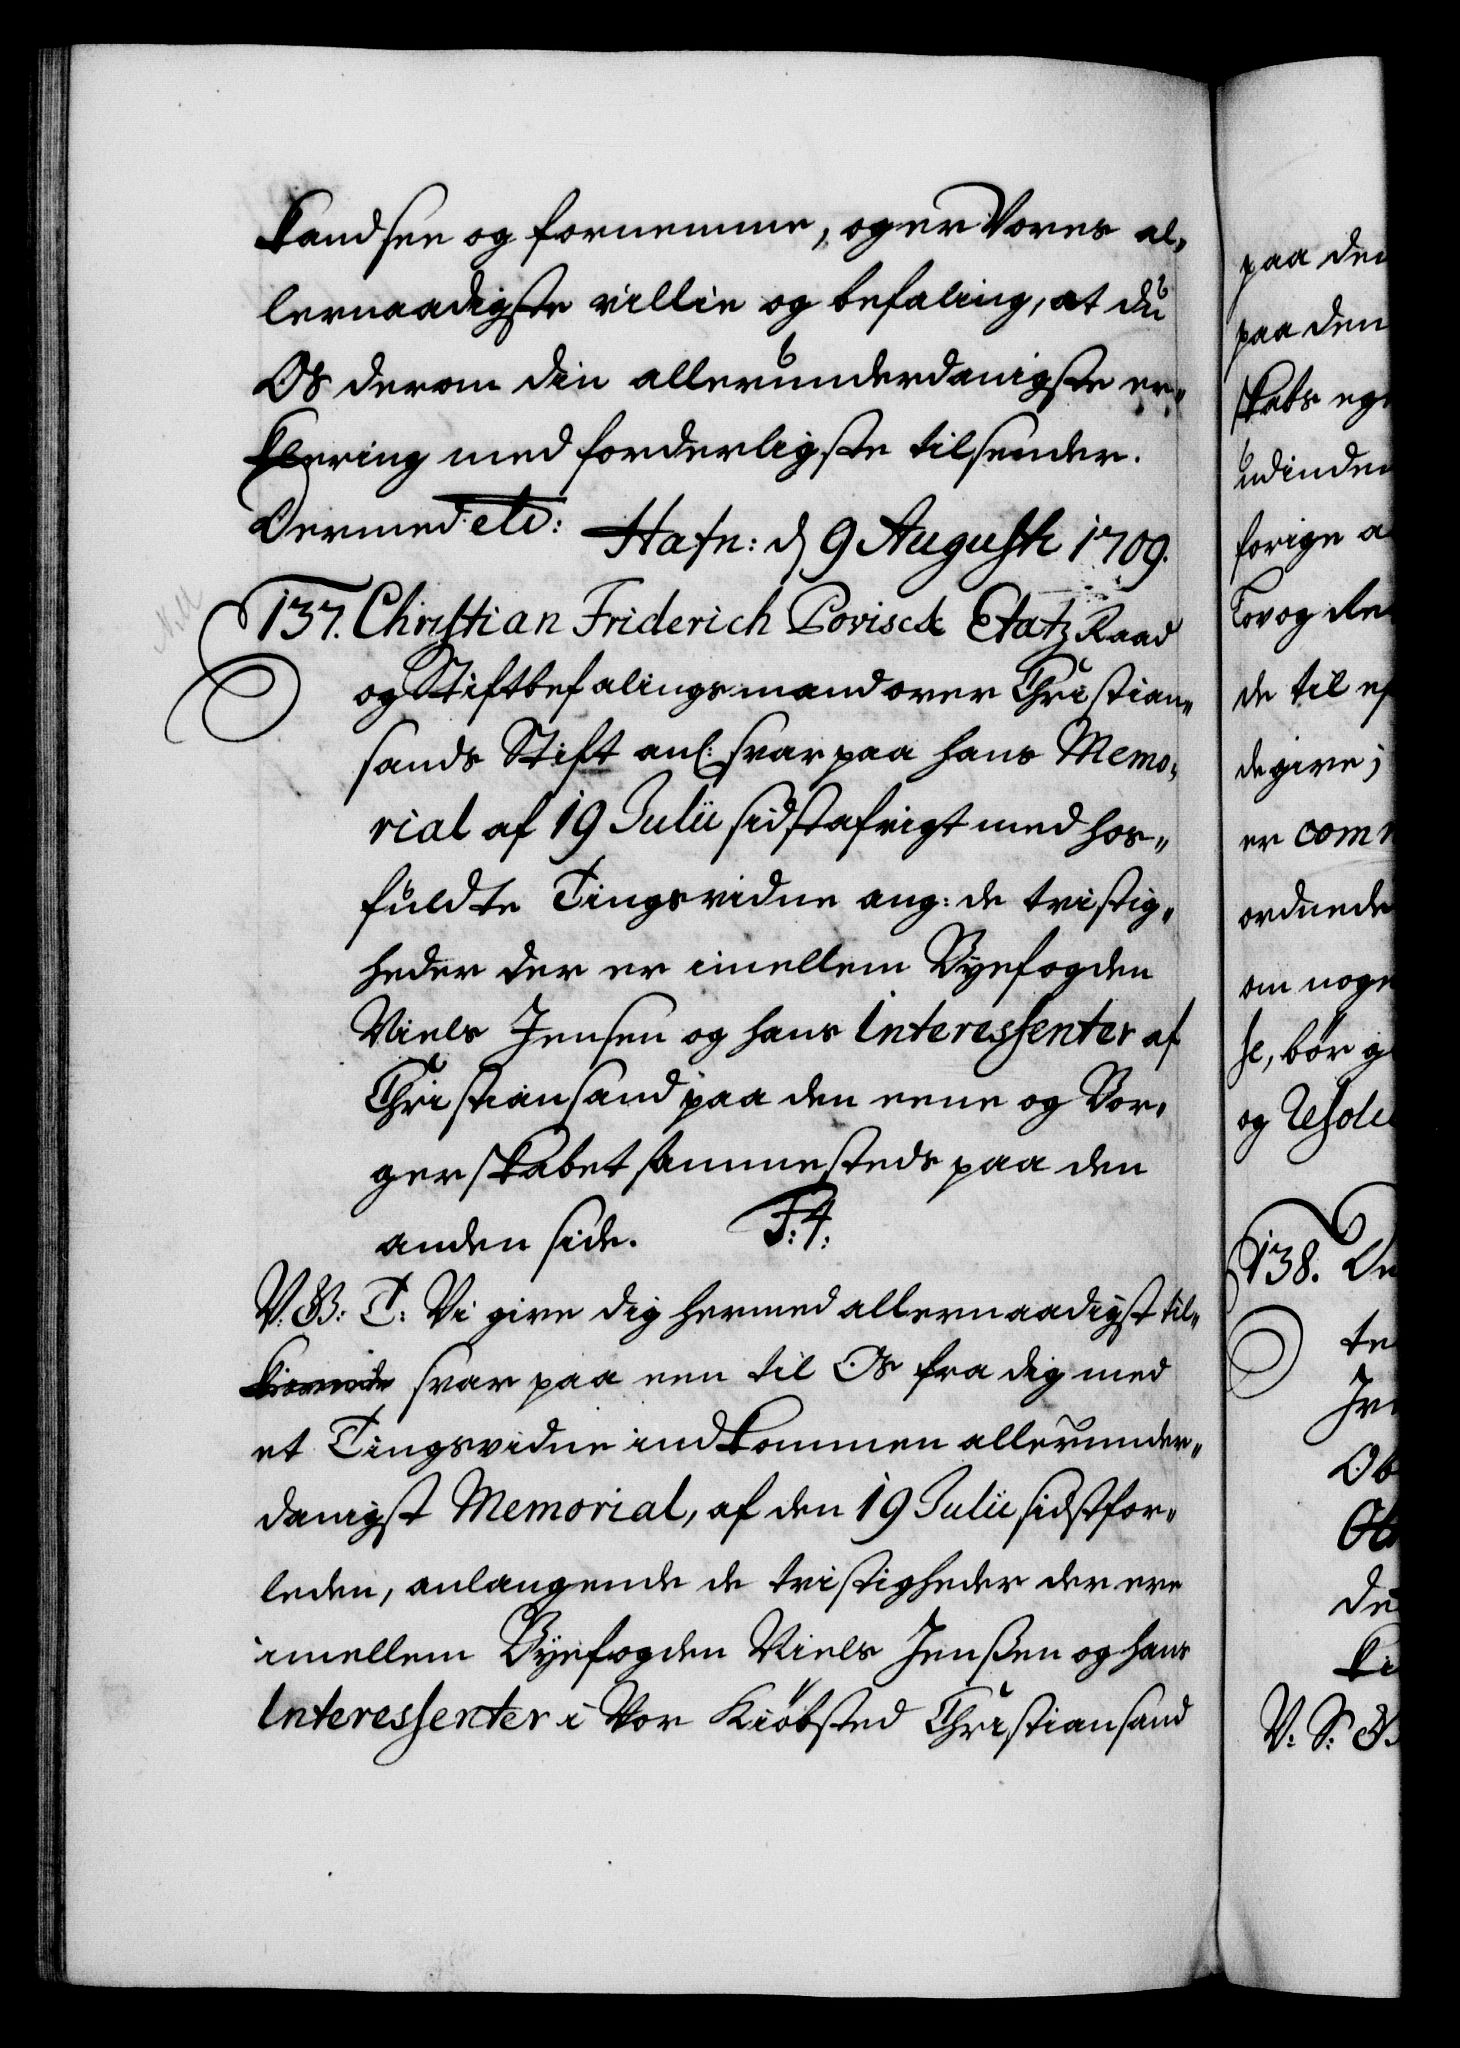 kand see og fornemme, og er Vores al„
lernaadigste villie og befaling, at du
Os derom din allerunderdanigste er„
klering med forderligste tilsender.
Dermed etc: Hafn: d 9 Augusti 1709.
137. Christian Friderich Povisck Etatz Raad
og Stiftbefalingsmand over Christian„
sands Stift anl: svar paa hans Memo„
rial af 19 Julii sidst afvigt med hos„
fuldte Tingsvidne ang: de tvistig„
heder der er imellem Byefogden
Niels Jensen og hans Interessenter af
Christiansand paa den eene og Bor„
gerskabet sammesteds paa den
anden side. F: 4:
V: G: T: Vi give dig hermed allernaadigst til„
svar paa een til Os fra dig med
et Tingsvidne indkommen allerunder„
danigst Memorial, af den 19 Julii sidstfor„
leden, anlangende de tvistigheder der ere
imellem Byefogden Niels Jenßen og hans
Interessenter i Vor Kiöbsted Christiansand
paa den
paa den
skabs eg
udinden
forige a
Lov og Re
de til ef
degive;
er com
ordnede
om noge
se, bør g
og Resolu
138. De
te
Ob
de
V: S: G